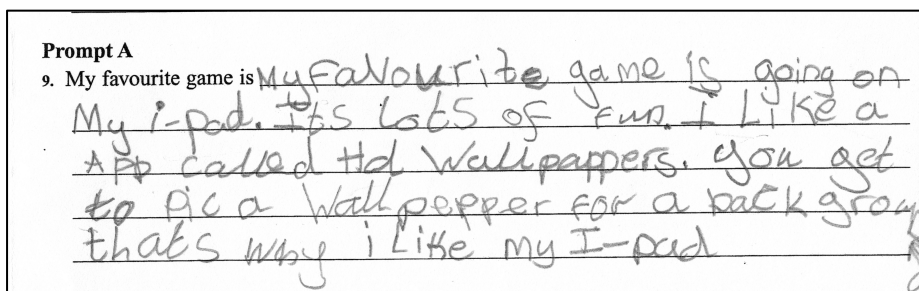 Prompt A
9. My favourite game is My favourite game is going on
My i-pad. Its lots of fun. I Like a
App called Hd Wallpappers. you get
to pic a Wall pepper for a back grou
thats why i Like my I-pad